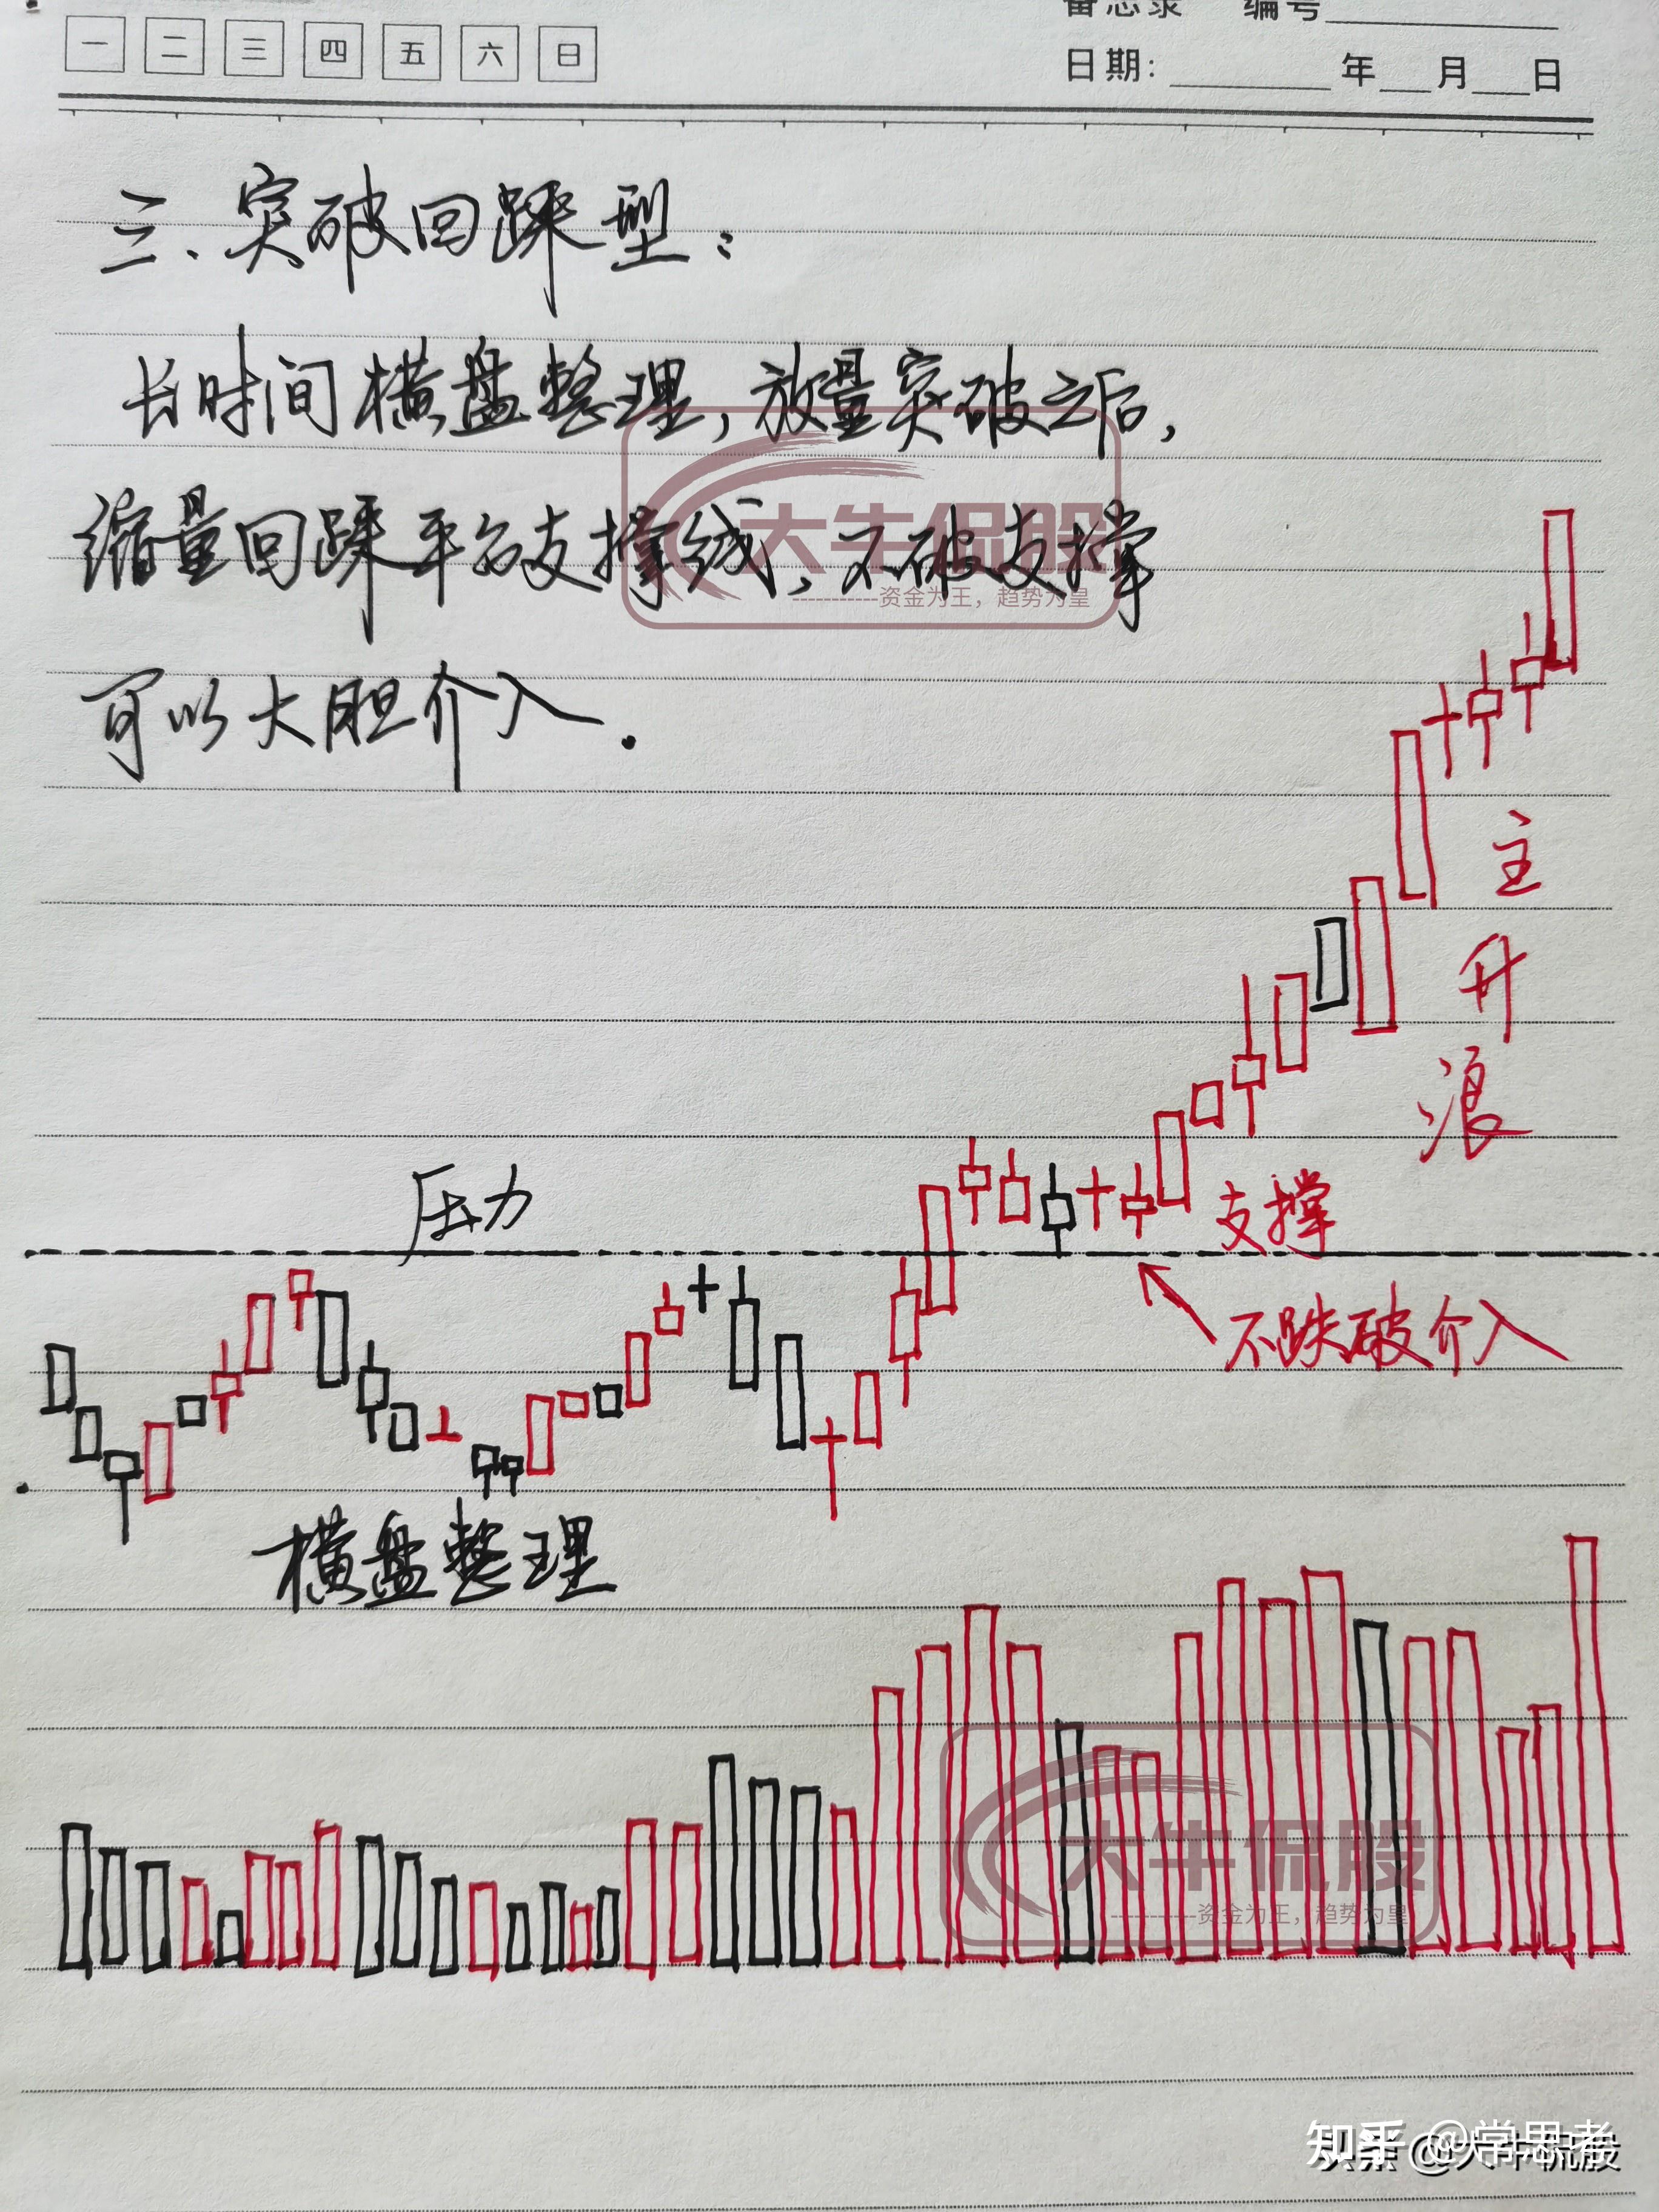 备忘录 编号
一 二 三 四 五 六 日
日期: 年 月 日
三、突破回踩型:
长时间横盘整理,放量突破之后,
缩量回踩平台支撑线,不破支撑
可以大胆介入.
大牛侃股
-----------资金为王，趋势为皇
主升浪
压力
支撑
不跌破介入
横盘整理
大牛侃股
-----------资金为王，趋势为皇
知乎 @学思者
头条 @大牛侃股